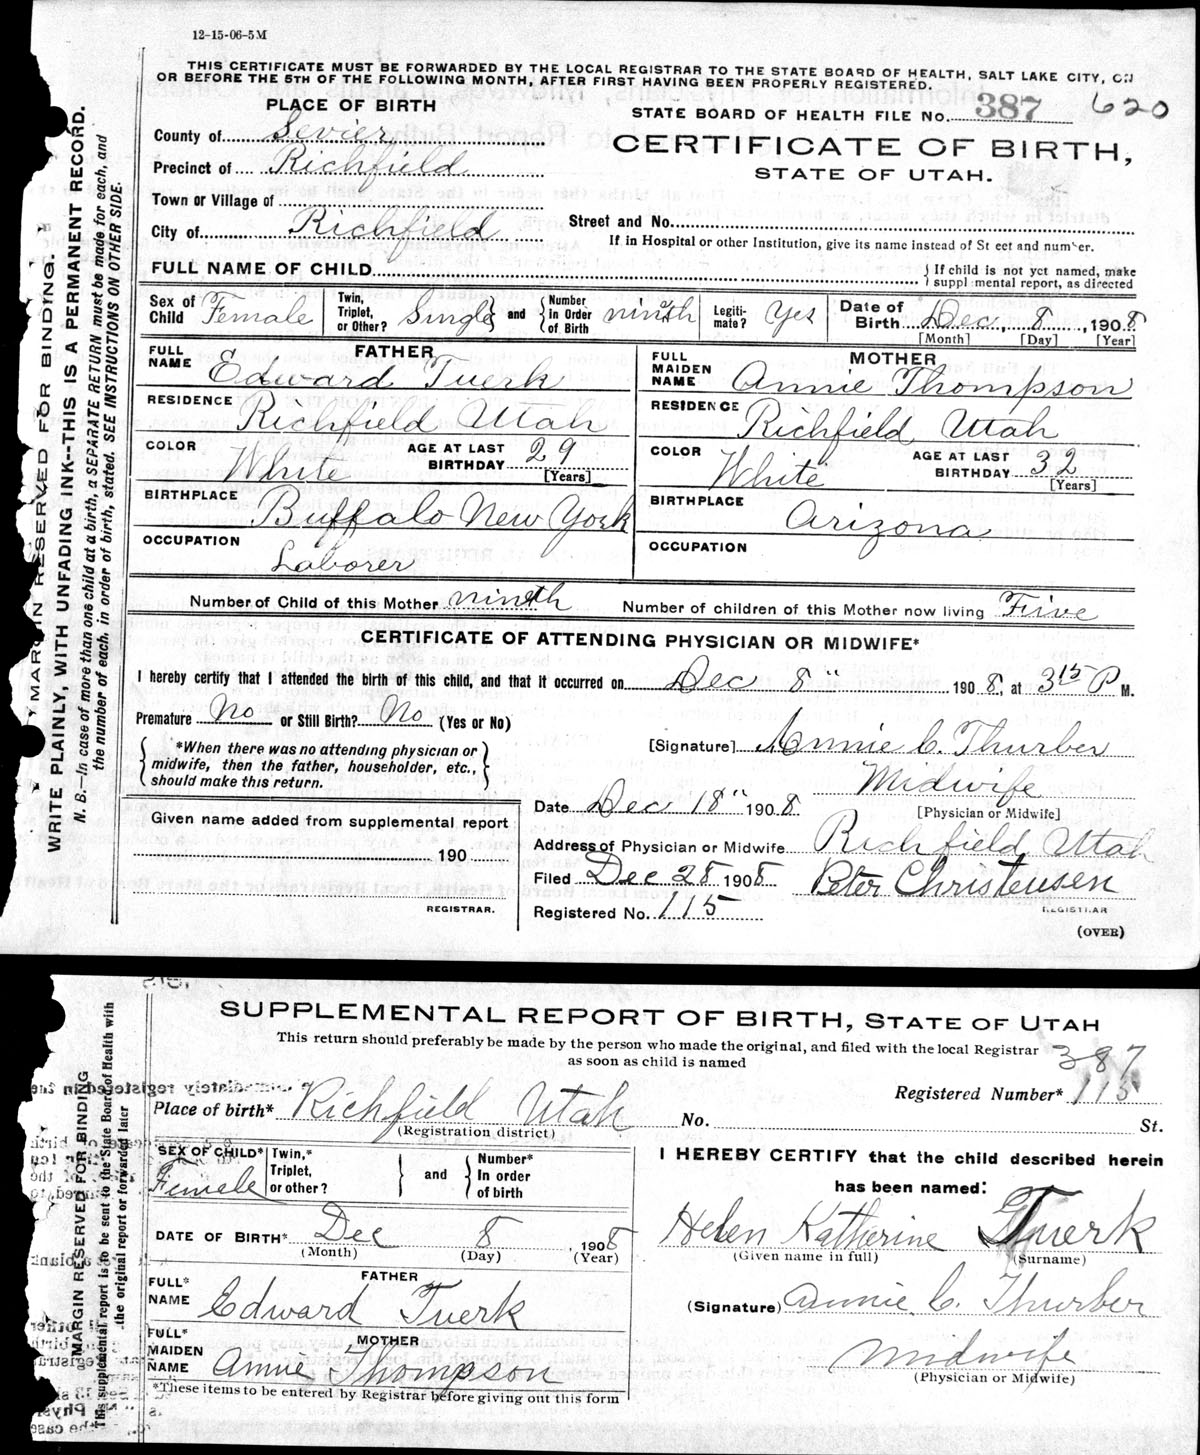 12-15-06-5M
THIS CERTIFICATE MUST BE FORWARDED BY THE LOCAL REGISTRAR TO THE STATE BOARD OF HEALTH, SALT LAKE CITY, ON
OR BEFORE THE 5TH OF THE FOLLOWING MONTH, AFTER FIRST HAVING BEEN PROPERLY REGISTERED.
PLACE OF BIRTH
STATE BOARD OF HEALTH FILE No. 387 620
County of Sevier
CERTIFICATE OF BIRTH,
Precinct of Richfield
STATE OF UTAH.
Town or Village of
Street and No.
City of Richfield
If in Hospital or other Institution, give its name instead of St eet and number.
FULL NAME OF CHILD
If child is not yet named, make
suppl mental report, as directed
Sex of Child Female
Twin, Triplet, or Other? Single and Number in Order of Birth ninth
Legiti-mate? Yes
Date of Birth Dec, 8, 1908
[Month] [Day] [Year]
FATHER
FULL NAME Edward Tuerk
RESIDENCE Richfield Utah
COLOR White AGE AT LAST BIRTHDAY 29
[Years]
BIRTHPLACE Buffalo New York
OCCUPATION Laborer
MOTHER
FULL MAIDEN NAME Annie Thompson
RESIDENCE Richfield, Utah
COLOR White AGE AT LAST BIRTHDAY 32
[Years]
BIRTHPLACE Arizona
OCCUPATION
Number of Child of this Mother ninth Number of children of this Mother now living Five
CERTIFICATE OF ATTENDING PHYSICIAN OR MIDWIFE*
I hereby certify that I attended the birth of this child, and that it occurred on Dec 8" 1908, at 3 15 P M.
Premature No or Still Birth? No (Yes or No)
*When there was no attending physician or
midwife, then the father, householder, etc.,
should make this return.
[Signature] Annie C. Thurber
Midwife
[Physician or Midwife]
Date Dec 18" 1908
Given name added from supplemental report
190
REGISTRAR.
Address of Physician or Midwife Richfield, Utah
Filed Dec 28 1908 Peter Christensen
REGISTRAR
Registered No. 115
(OVER)
MARGIN RESERVED FOR BINDING.
WRITE PLAINLY, WITH UNFADING INK--THIS IS A PERMANENT RECORD.
N. B.—In case of more than one child at a birth, a SEPARATE RETURN must be made for each, and
the number of each, in order of birth, stated. SEE INSTRUCTIONS ON OTHER SIDE.
SUPPLEMENTAL REPORT OF BIRTH, STATE OF UTAH
This return should preferably be made by the person who made the original, and filed with the local Registrar
as soon as child is named
387
Registered Number* 115
Place of birth* Richfield Utah No. St.
(Registration district)
SEX OF CHILD* Female
Twin,* Triplet, or other? and Number* In order of birth
DATE OF BIRTH* Dec 8, 1908
(Month) (Day) (Year)
FATHER
FULL* NAME Edward Tuerk
MOTHER
FULL* MAIDEN NAME Annie Thompson
*These items to be entered by Registrar before giving out this form
I HEREBY CERTIFY that the child described herein
has been named:
Helen Katherine Tuerk
(Given name in full) (Surname)
(Signature) Annie C. Thurber
Midwife
(Physician or Midwife)
MARGIN RESERVED FOR BINDING
This supplemental report is to be sent to the State Board of Health with
the original report or forwarded later